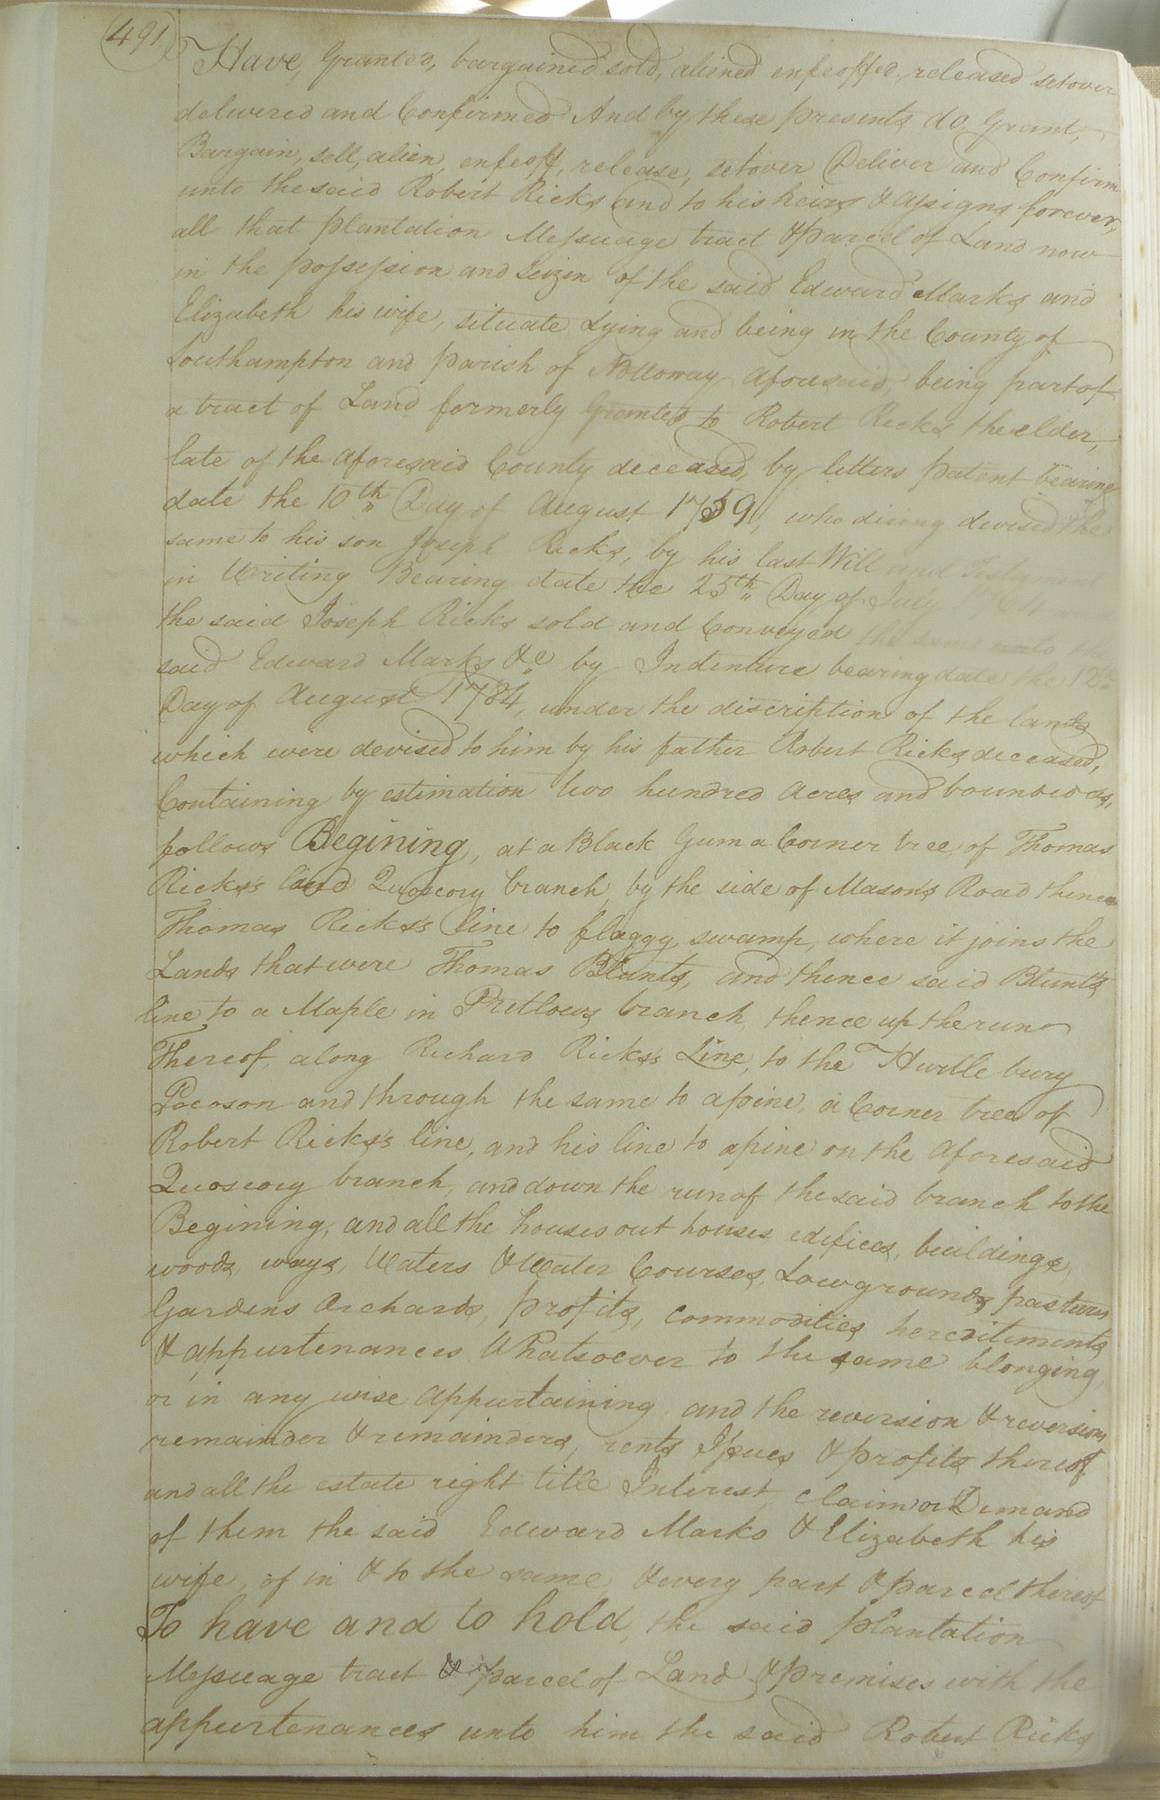 491
Have, Granted, bargained sold, aliened enfeoffed, released setover
delivered and Confirmed And by these presents do Grant,
Bargain, sell, alien, enfeoff, release, setover Deliver and Confirm
unto the said Robert Ricks and to his heirs & assigns forever,
all that plantation Messuage tract & parcel of Land now
in the possession and Seizin of the said Edward Marks and
Elizabeth his wife, situate Lying and being in the County of
Southampton and parish of Nottoway aforesaid being part of
a tract of Land formerly Granted to Robert Ricks the elder,
late of the aforesaid County deceased, by letters patent bearing
date the 10th Day of August 1759, who dieing devised the
same to his son Joseph Ricks, by his last Will and
in Writing Bearing date the 25th Day of July
the said Joseph Ricks sold and Conveyed the same unto the
said Edward Marks &c by Indenture bearing date the 12th
Day of August 1784, under the discription of the lands
which were devised to him by his father Robert Ricks deceased,
Containing by estimation two hundred Acres and bounded as,
follows Begining, at a Black Gum a Corner tree of Thomas
Ricks's and Quoseory branch, by the side of Masons Road thence
Thomas Ricks's line to flaggy swamp, where it joins the
Lands that were Thomas Blunts, and thence said Blunts
line to a Maple in Pretlows branch, thence up the run
Thereof, along Richard Ricks's Line, to the Hurtle bury
Pocoson and through the same to a pine, a Corner tree of
Robert Ricks's line, and his line to a pine on the aforesaid
Quoseory branch, and down the run of the said branch to the
Begining, and all the houses out houses edifices, buildings,
woods, ways, Waters & Water Courses, Lowgrounds pastures
Gardens Orchards, profits, commodities hereditiments
& appurtenances Whatsoever to the same blonging,
or in any wise appurtaining and the reversion & reversions
remainder & remainders, rents Issues & profits thereof
and all the estate right title Interest claim or Demand
of them the said Edward Marks & Elizabeth his
wife, of in & to the same, & every part & parcel thereof
To have and to hold, the said plantation
Messuage tract & parcel of Land & premises with the
appurtenances unto him the said Robert Ricks